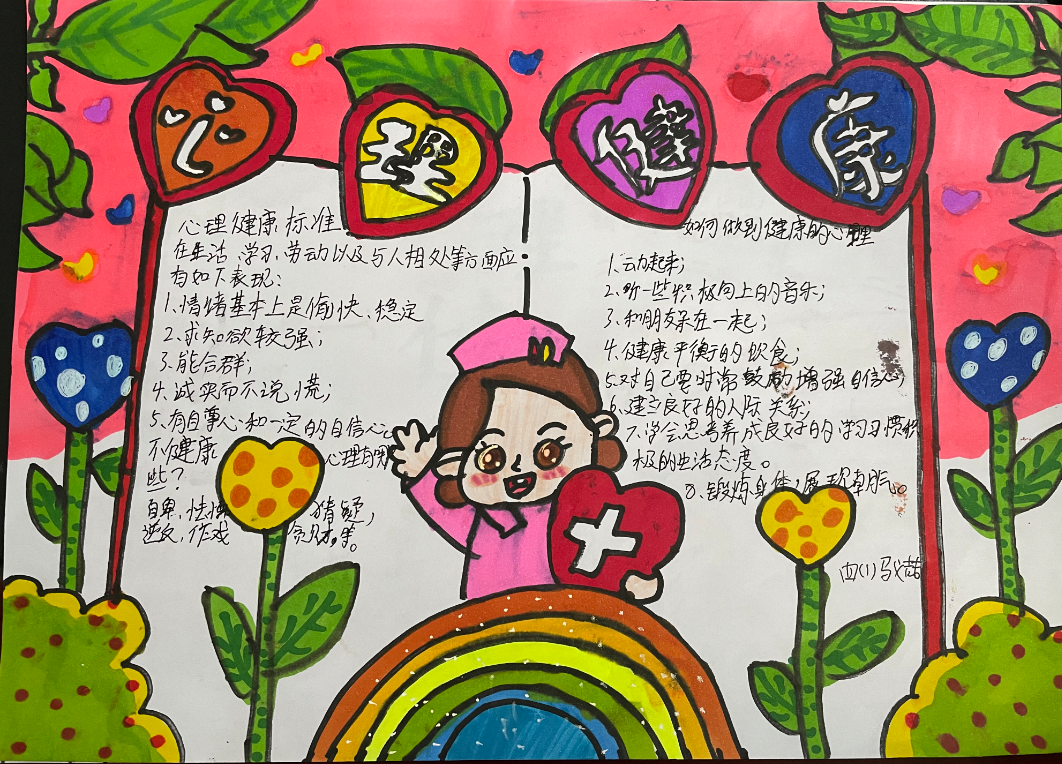 心理健康
心理健康标准
在生活、学习、劳动以及与人相处等方面应
有如下表现:
1、情绪基本上是愉快、稳定
2、求知欲较强;
3、能合群;
4、诚实而不说慌;
5、有自尊心和一定的自信心
不健康 心理有哪
些?
自卑,怯懦 猜疑,
逆反,作戏 贪财,等。
如何做到健康的心理
1、动起来;
2、听一些积极向上的音乐;
3、和朋友呆在一起;
4、健康平衡的饮食;
5、对自己要时常鼓励增强自信心;
6、建立良好的人际关系;
7、学会思考养成良好的学习习惯积
极的生活态度。
8、锻炼身体,展现
四(1)马